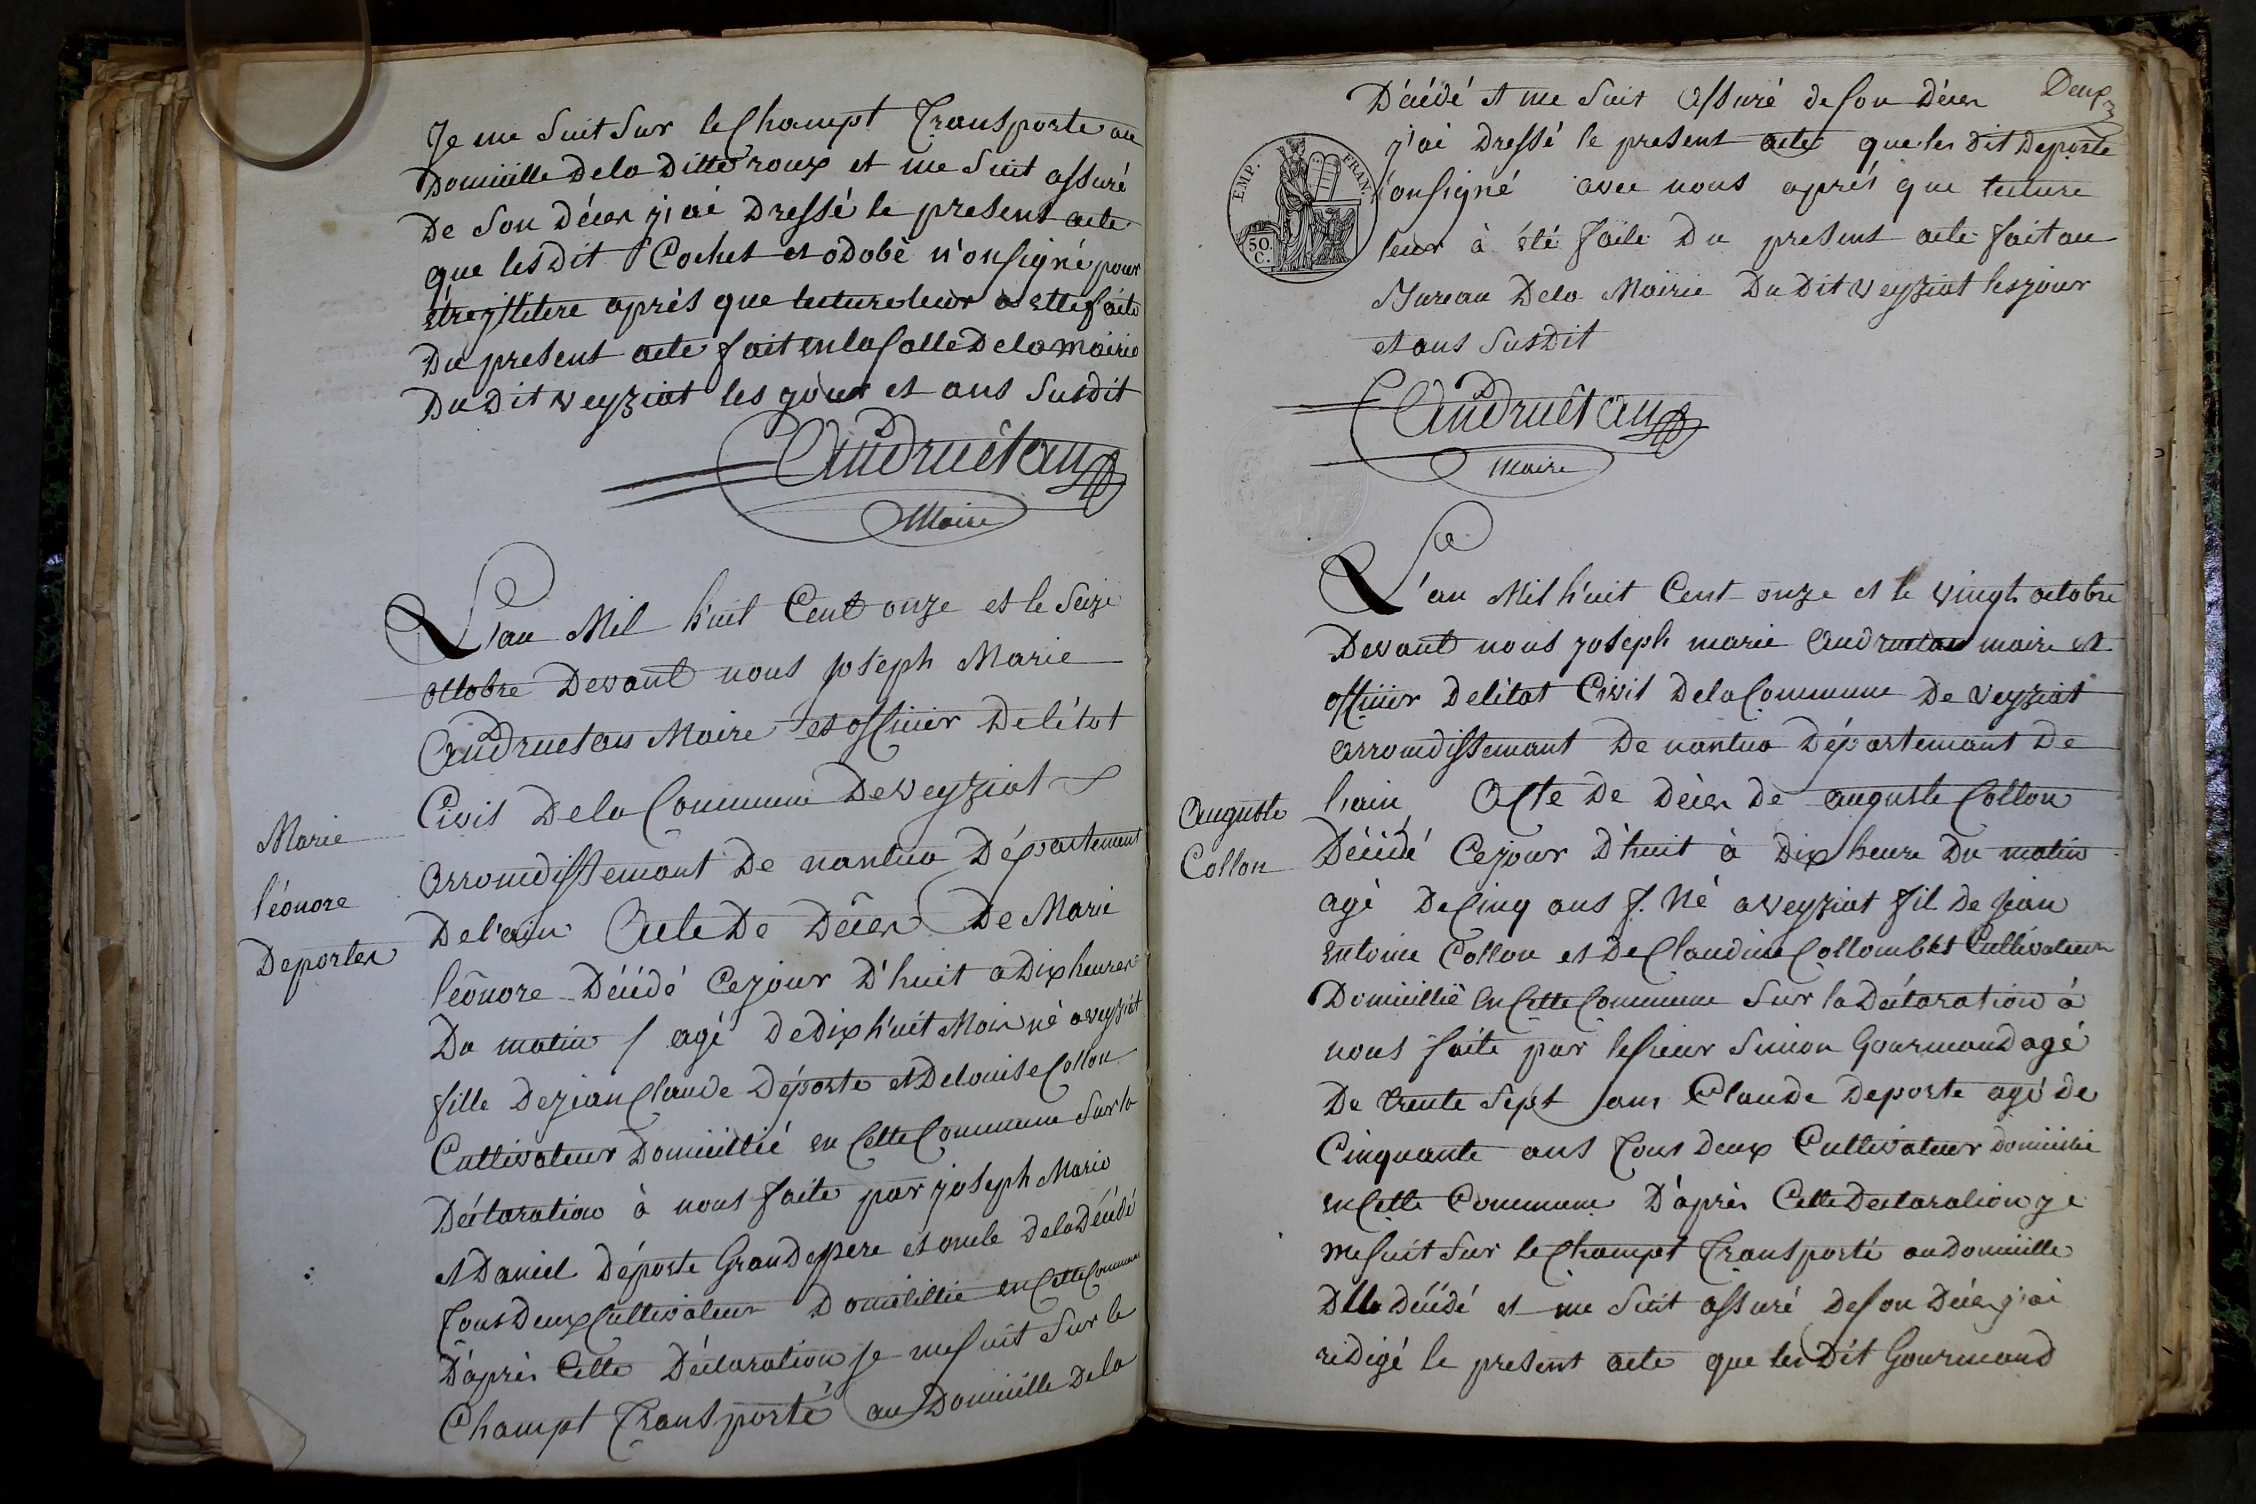 Je me Suit Sur le Champt Transporte au
Domiciille De la Ditte roux et me Suit assuré
De Son Décer j'ai Dressé le present acte
que les Dit Cochet et odobé n'on Signé pour
etre illitere après que lecture leur a ette faite
Du present acte fait en la Salle De la Mairie
Du Dit veyziat les jour et ans Susdit
Audruetan
Maire
L'an Mil huit Cent onze et le Seize
octobre Devant nous joseph Marie
Audruetan Maire et officier De l'état
Civil De la Commune De veyziat
arromdissemant De nantua Département
De l'ain Acte De Décer De Marie
léonore Décédé Ce jour D'huit a Dix heures
Du matin / agé De Dix huit Mois né a veyziat
fille De jean Claude Déporte et De louise Collon
Cultivateur Domicillié en Cette Commune Sur la
Déclaration à nous faite par joseph Marie
et Daniel Déporte Grand pere et oncle De la Décédé
Tous Deux Cultivateur Domicillié en Cette Commune
D'après Cette Déclaration je me Suit Sur le
Champt Transporté au Domicille De la
Marie
léonore
Deporter
Deux
Décédé et me Suit assuré de Son Décer
j'ai Dressé le present acte que les Dit Deporte
onSigné avec nous après que lecture
leur à été faite Du present acte fait au
Bureau De la Mairie Du Dit veyziat les jour
et ans Susdit
EMP. FRAN.
50.
C.
Audruetan
maire
L'an Mil huit Cent onze et le vingt octobre
Devant nous joseph marie Audruetan maire et
officier De l'état Civil De la Commune De veyziat
arromdissemant De nantua Département De
l'ain Acte De Décer De auguste Collon
Décédé Ce jour D'huit à Dix heure Du matin
agé De Cinq ans f. Né a veyziat fil De jean
entoine Collon et De Claudine Collombet Cultivateur
Domicillié en Cette Commune Sur la Déclaration à
nous faite par le Sieur Simon Gourmand agé
De trente Sept ans Claude Deporte agé De
Cinquante ans Tous Deux Cultivateur domicilié
en Cette Commune D'après Cette Déclaration je
me Suit Sur le Champt Transporté au Domicille
Décédé et me Suit assuré De Son Décer j'ai
redigé le present acte que les Dit Gourmand
Auguste
Collon